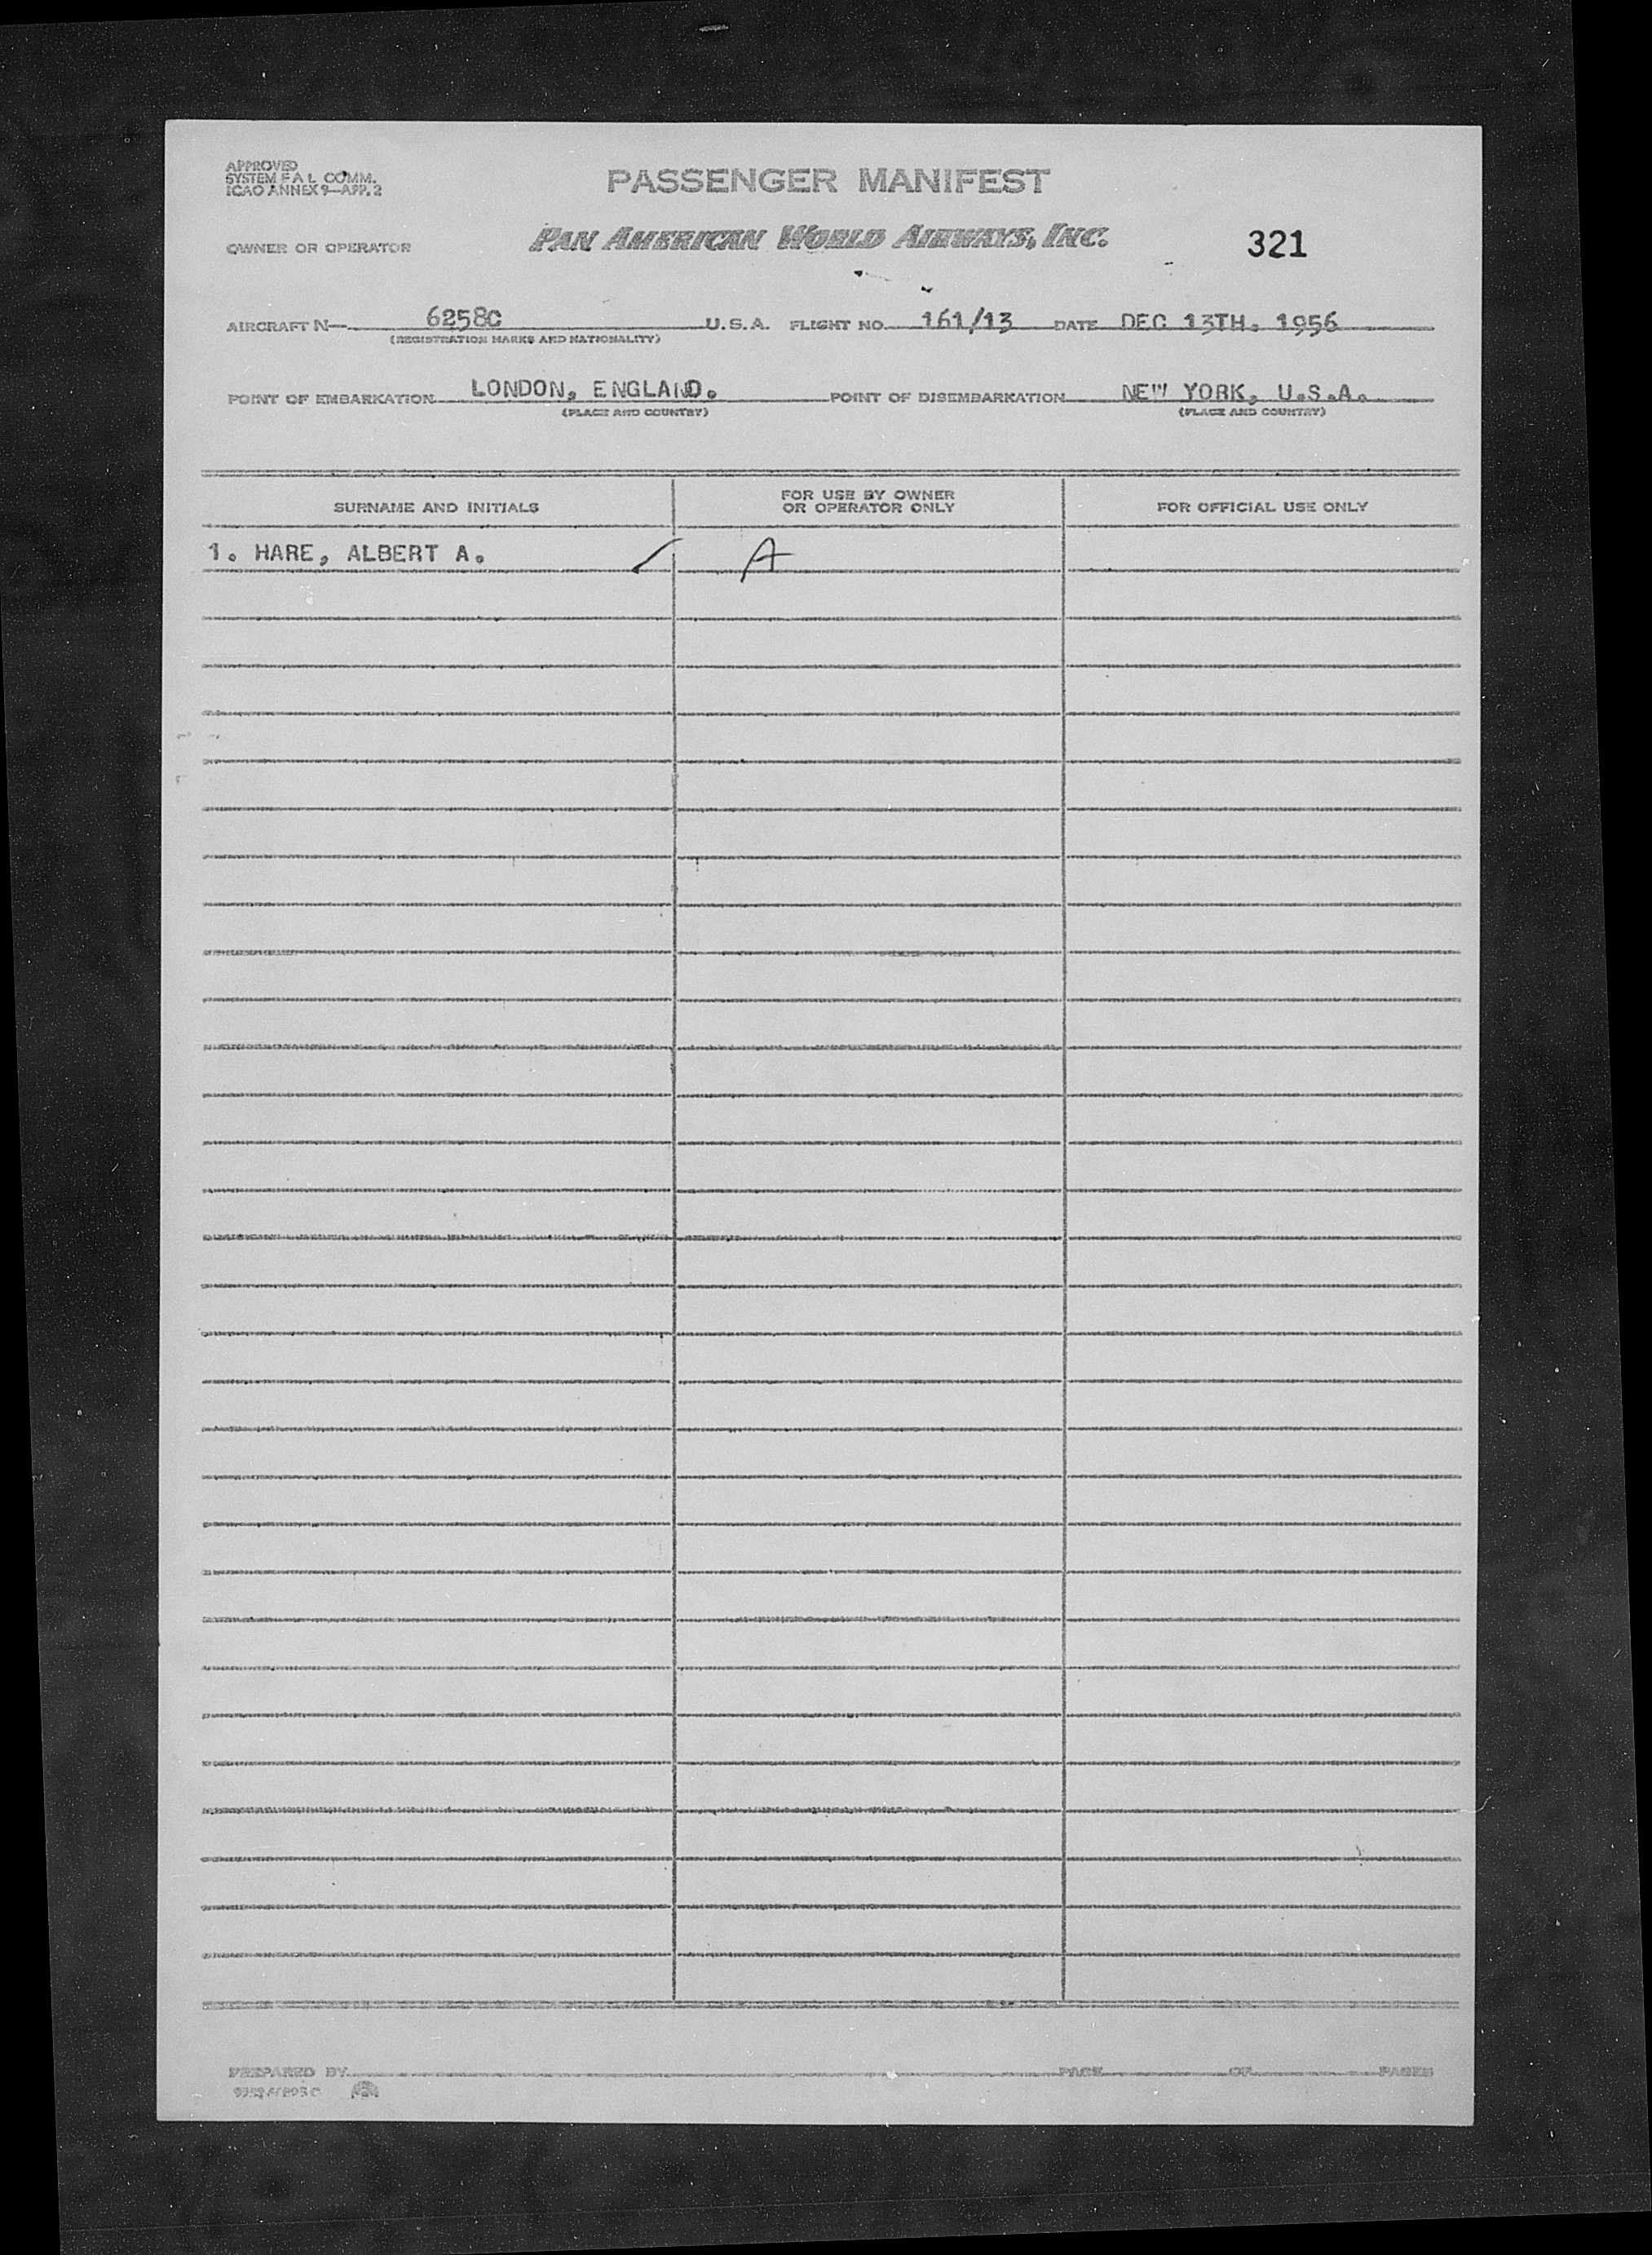 APPROVED
SYSTEM F A L COMM.
ICAO ANNEX 9—APP. 2
PASSENGER MANIFEST
OWNER OR OPERATOR
PAN AMERICAN WORLD AIRWAYS, INC.
321
AIRCRAFT N— 6258C U.S.A. FLIGHT NO. 161/13 DATE DEC 13TH. 1956
(REGISTRATION MARKS AND NATIONALITY)
POINT OF EMBARKATION LONDON, ENGLAND. POINT OF DISEMBARKATION NEW YORK, U.S.A.
(PLACE AND COUNTRY) (PLACE AND COUNTRY)
SURNAME AND INITIALS
FOR USE BY OWNER
OR OPERATOR ONLY
FOR OFFICIAL USE ONLY
1. HARE, ALBERT A. A
PREPARED BY PAGE OF PAGES